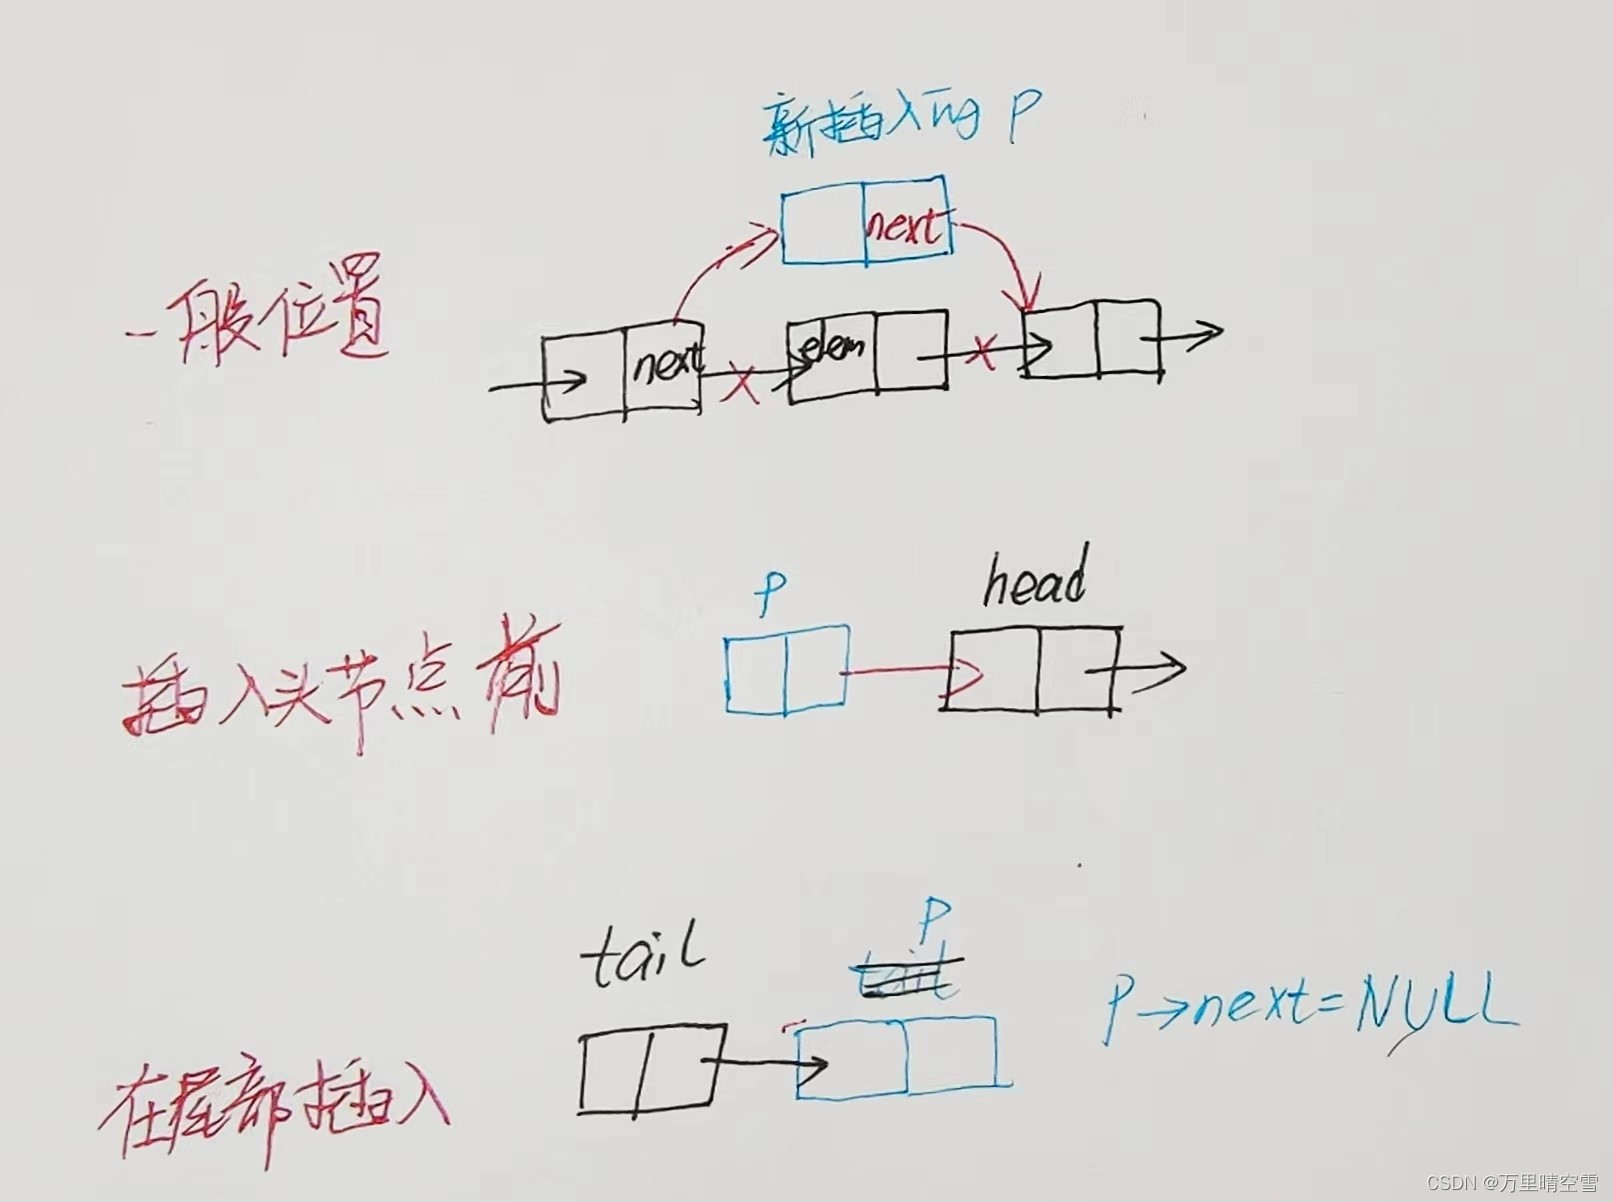 新插入ing P
next
一般位置
next
elem
P
head
插入头节点前
P
tail
tail
P→next=NULL
在尾部插入
CSDN @万里晴空雪